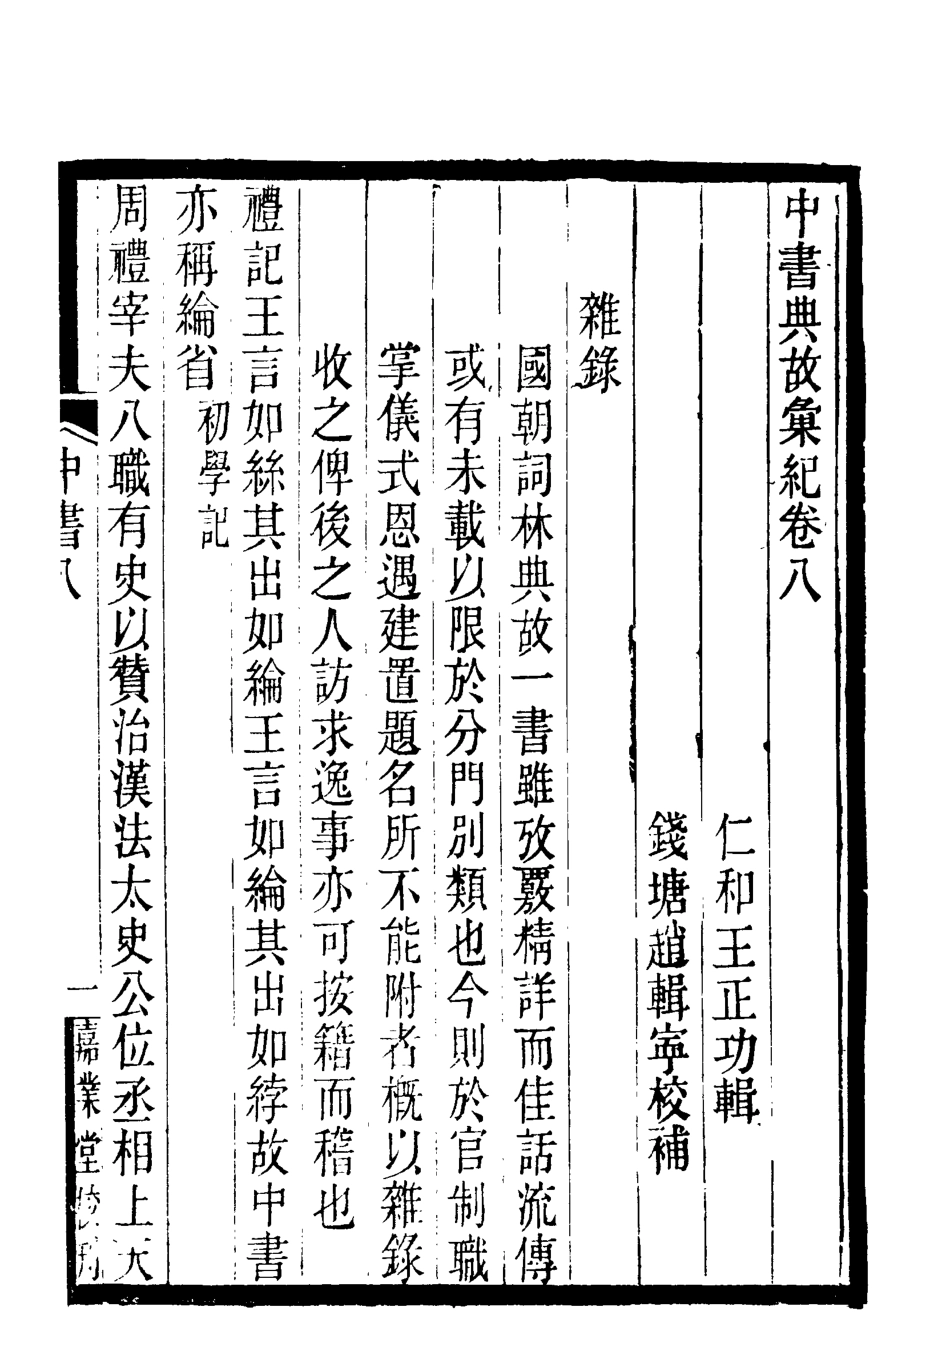 中書典故彙紀卷八
仁和王正功輯
錢塘趙輯寧校補
雜錄
國朝詞林典故一書雖攷覈精詳而佳話流傳
或有未載以限於分門別類也今則於官制職
掌儀式恩遇建置題名所不能附者槪以雜錄
收之俾後之人訪求逸事亦可按籍而稽也
禮記王言如絲其出如綸王言如綸其出如綍故中書
亦稱綸省初學記
周禮宰夫八職有史以贊治漢法太史公位丞相上天
中書八
一
嘉業堂校刊